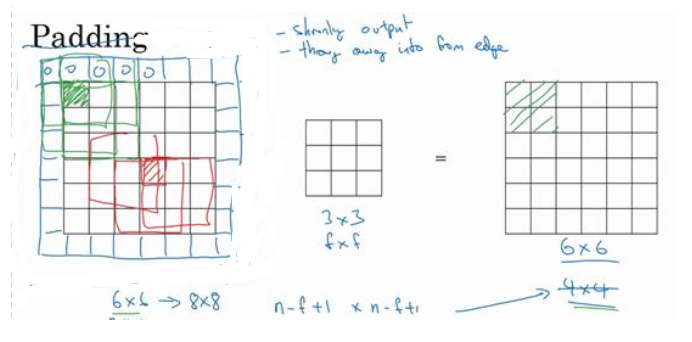 Padding
- shrinky output
- throw away info from edge
0 0 0 0 0
=
3×3
f×f
6×6
6×6 → 8×8
n-f+1 × n-f+1
→ 4×4